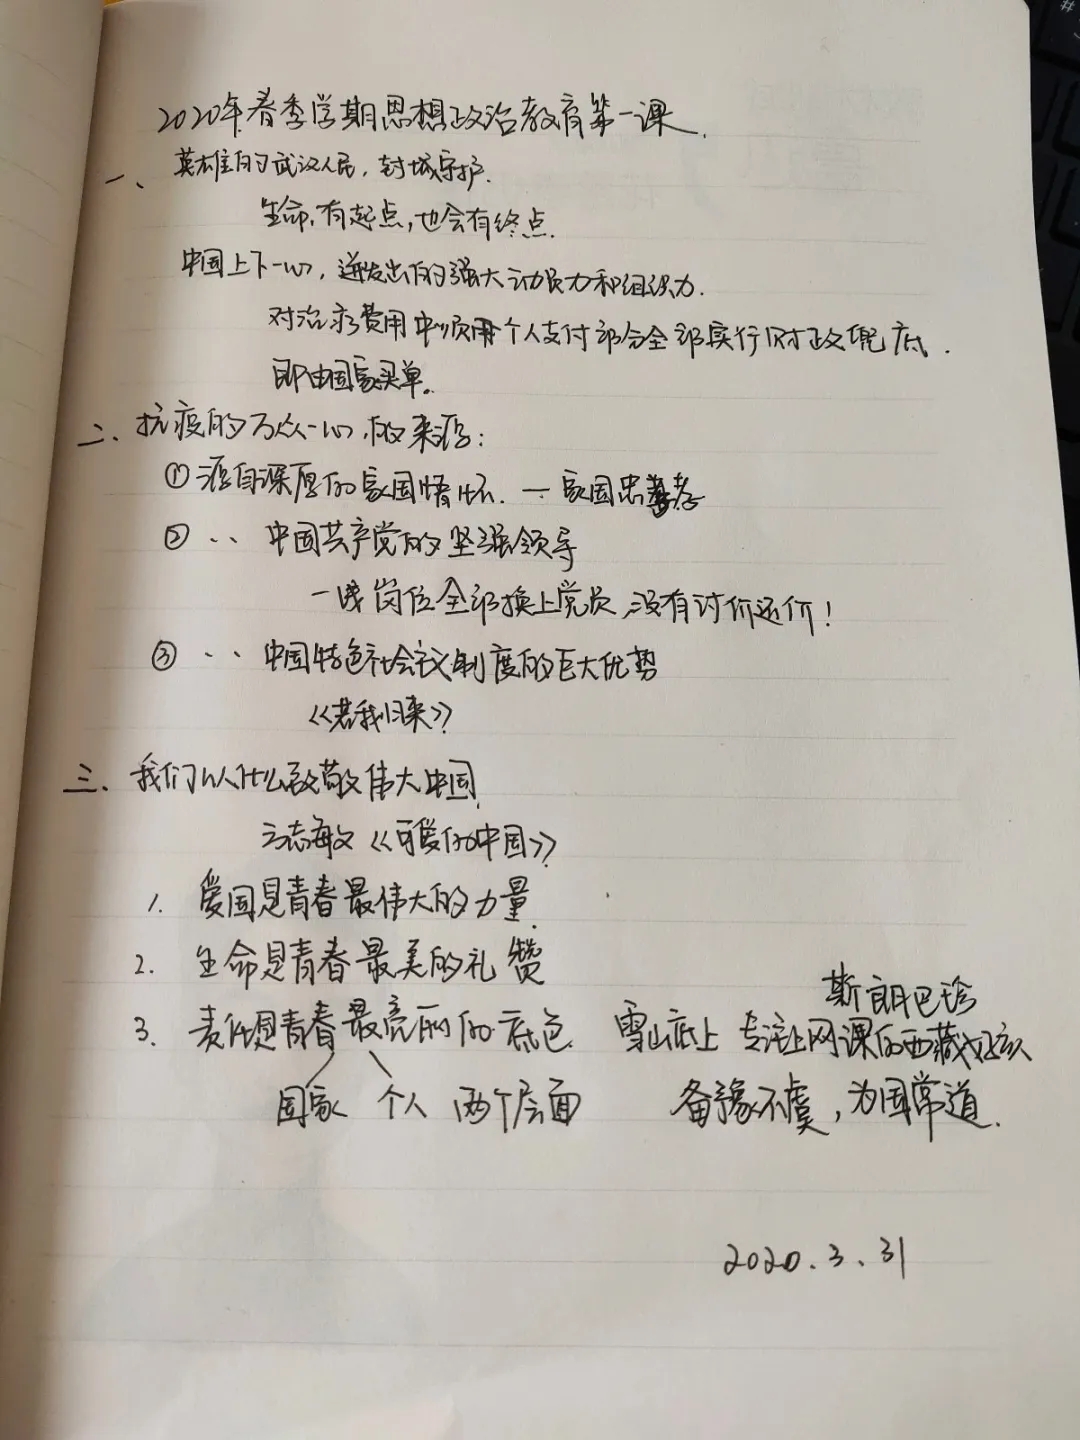 2020年春季学期思想政治教育第一课.
一、英雄的武汉人民，封城守护.
生命，有起点，也会有终点.
中国上下一心，迸发出的强大动员力和组织力.
对治疗费用中须用个人支付部分全部实行财政兜底.
即由国家买单。
二、抗疫的万众一心，的来源：
①源自深厚的家国情怀. — 家国忠孝
② .. 中国共产党的坚强领导
一线岗位全部换上党员,没有讨价还价！
③ .. 中国特色社会主义制度的巨大优势
《若我归来》
三、我们以什么致敬伟大中国
方志敏《可爱的中国》
1. 爱国是青春最伟大的力量.
2. 生命是青春最美的礼赞
斯朗巴珍
3. 责任是青春最亮丽的底色. 雪山底上 专注上网课的西藏女孩
国家 个人 两个层面 备豫不虞，为国常道.
2020.3.31